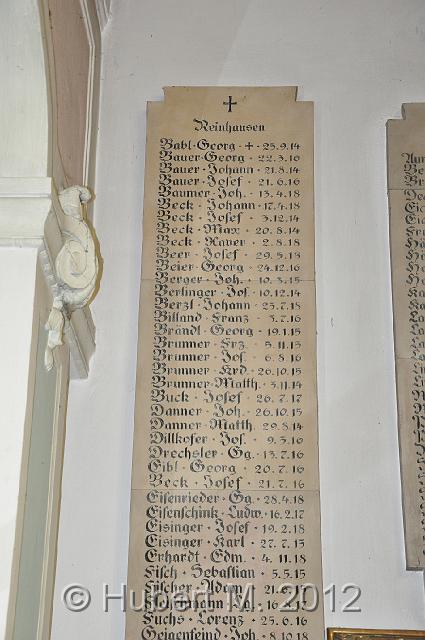 Reinhausen
Babl · Georg · + · 25.9.14
Bauer · Georg · 22.3.16
Bauer · Johann · 21.8.14
Bauer · Josef · 21.6.16
Baumer · Joh. · 13.4.18
Beck · Johann · 17.4.18
Beck · Josef · 3.12.14
Beck · Max · 20.8.14
Beck · Xaver · 2.8.18
Beer · Josef · 29.5.18
Beier · Georg · 24.12.16
Berger · Joh. · 10.3.15
Berlinger · Jos. · 10.12.14
Berzl · Johann · 23.7.18
Billand · Franz · 3.7.16
Brändl · Georg · 19.1.15
Brunner · Frz. · 5.11.15
Brunner · Jos. · 6.8.16
Brunner · Krd. · 26.10.15
Brunner · Matth. · 3.11.14
Buck · Josef · 26.7.17
Danner · Joh. · 26.10.15
Danner · Matth. 29.8.14
Dillkofer · Jos. · 9.5.16
Drechsler · Gg. · 13.7.16
Eibl · Georg · 20.7.16
Beck · Josef · 21.7.16
Eisenrieder · Gg. · 28.4.18
Eisenschink · Ludw. · 16.2.17
Eisinger · Josef · 19.2.18
Eisinger · Karl · 27.7.15
Erhardt · Edm. · 4.11.18
Fisch · Sebastian · 5.5.15
Fischer · Adam
Gg. · 16.8.17
Fuchs · Lorenz · 25.6.16
Geigenfeind · Joh. · 8.10.18
© Hubert M. 2012